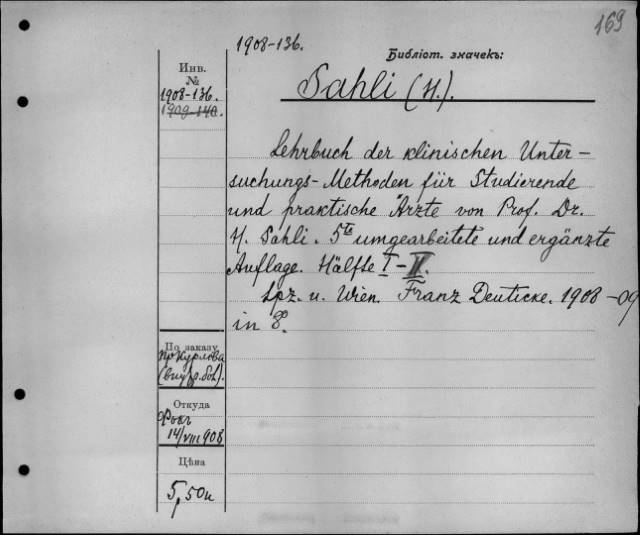 169
1908-136.
Библіот. значекъ:
Инв.
№
1908-136.
1909-140.
Sahli (H.).
Lehrbuch der klinischen Unter-
suchungs-Methoden für Studierende
und praktische Ärzte von Prof. Dr.
H. Sahli. 5te umgearbeitete und ergänzte
Auflage. Hälfte I-II.
Lpz. u. Wien. Franz Deuticke. 1908-09
in 8°.
По заказу
пр Курлова
(внутр. бол).
Откуда
Фокг
14/VIII 908
Цѣна
5,50